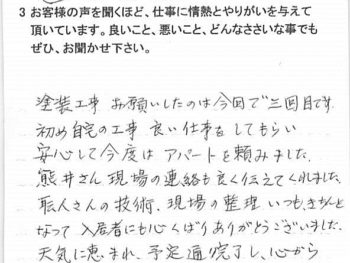 3 お客様の声を聞くほど、仕事に情熱とやりがいを与えて
頂いています。良いこと、悪いこと、どんなささいな事でも
ぜひ、お聞かせ下さい。
塗装工事 お願いしたのは今回で三回目です。
初め自宅の工事 良い仕事をしてもらい
安心して今度は アパートを頼みました。
熊井さん 現場の連絡も良く伝えてくれました。
職人さんの技術、現場の整理 いつもきちんと
なって 入居者にも心くばりありがとうございました。
天気に恵まれ、予定通り完了し、心から